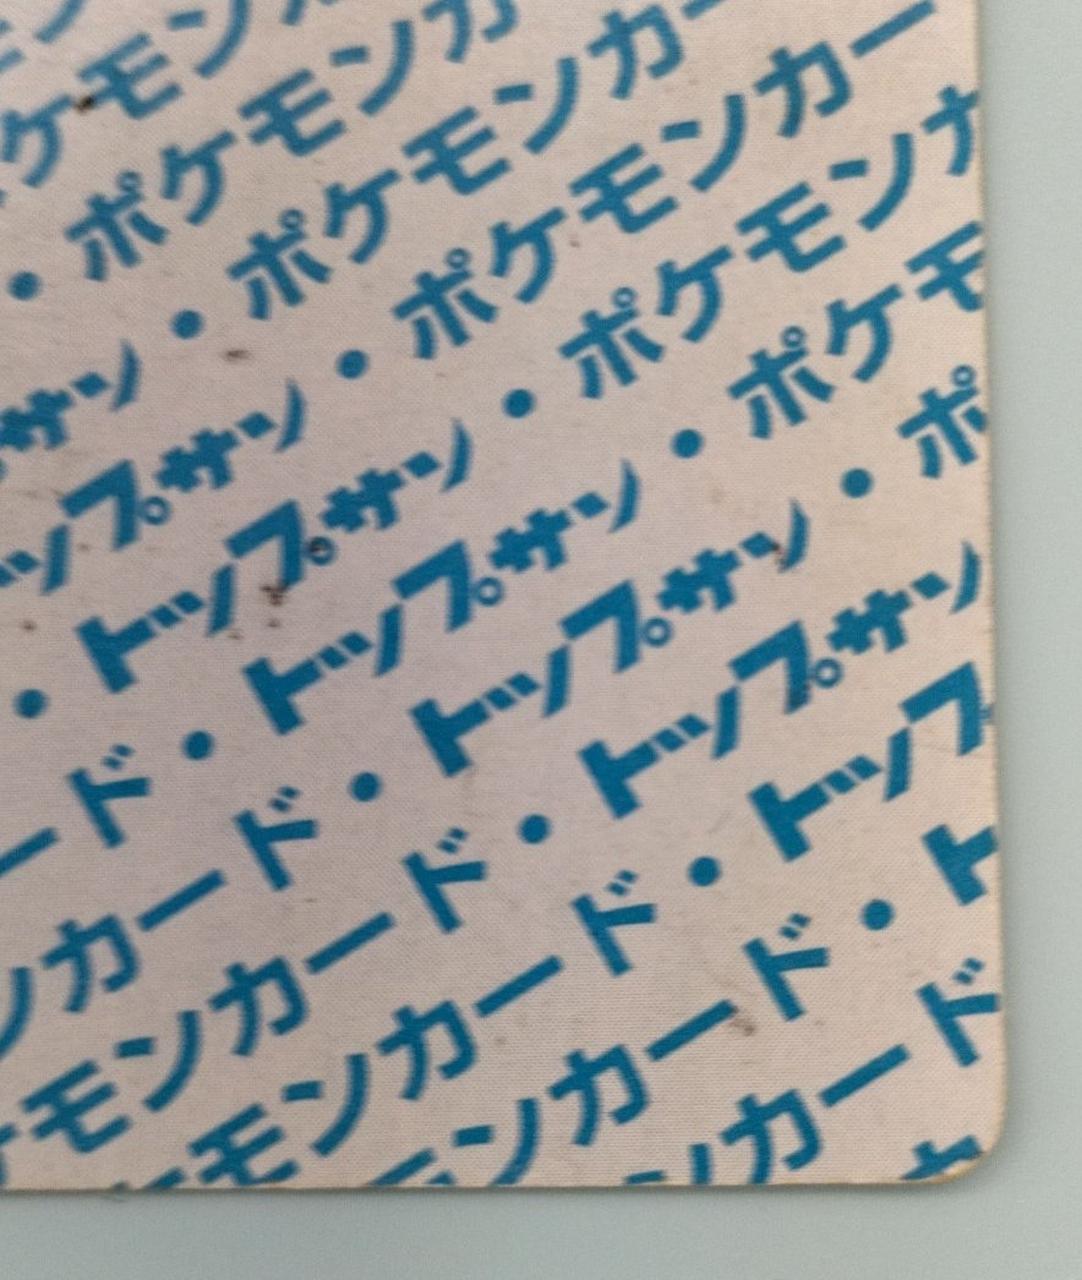 ケモン
・ポケモンカ
サン・ポケモンカー
ップサン・ポケモンカー
・トップサン・ポケモンカ
ード・トップサン・ポケモ
ンカード・トップサン・ポ
モンカード・トップサン
モンカード・トップ
ンカード・ト
ンカード